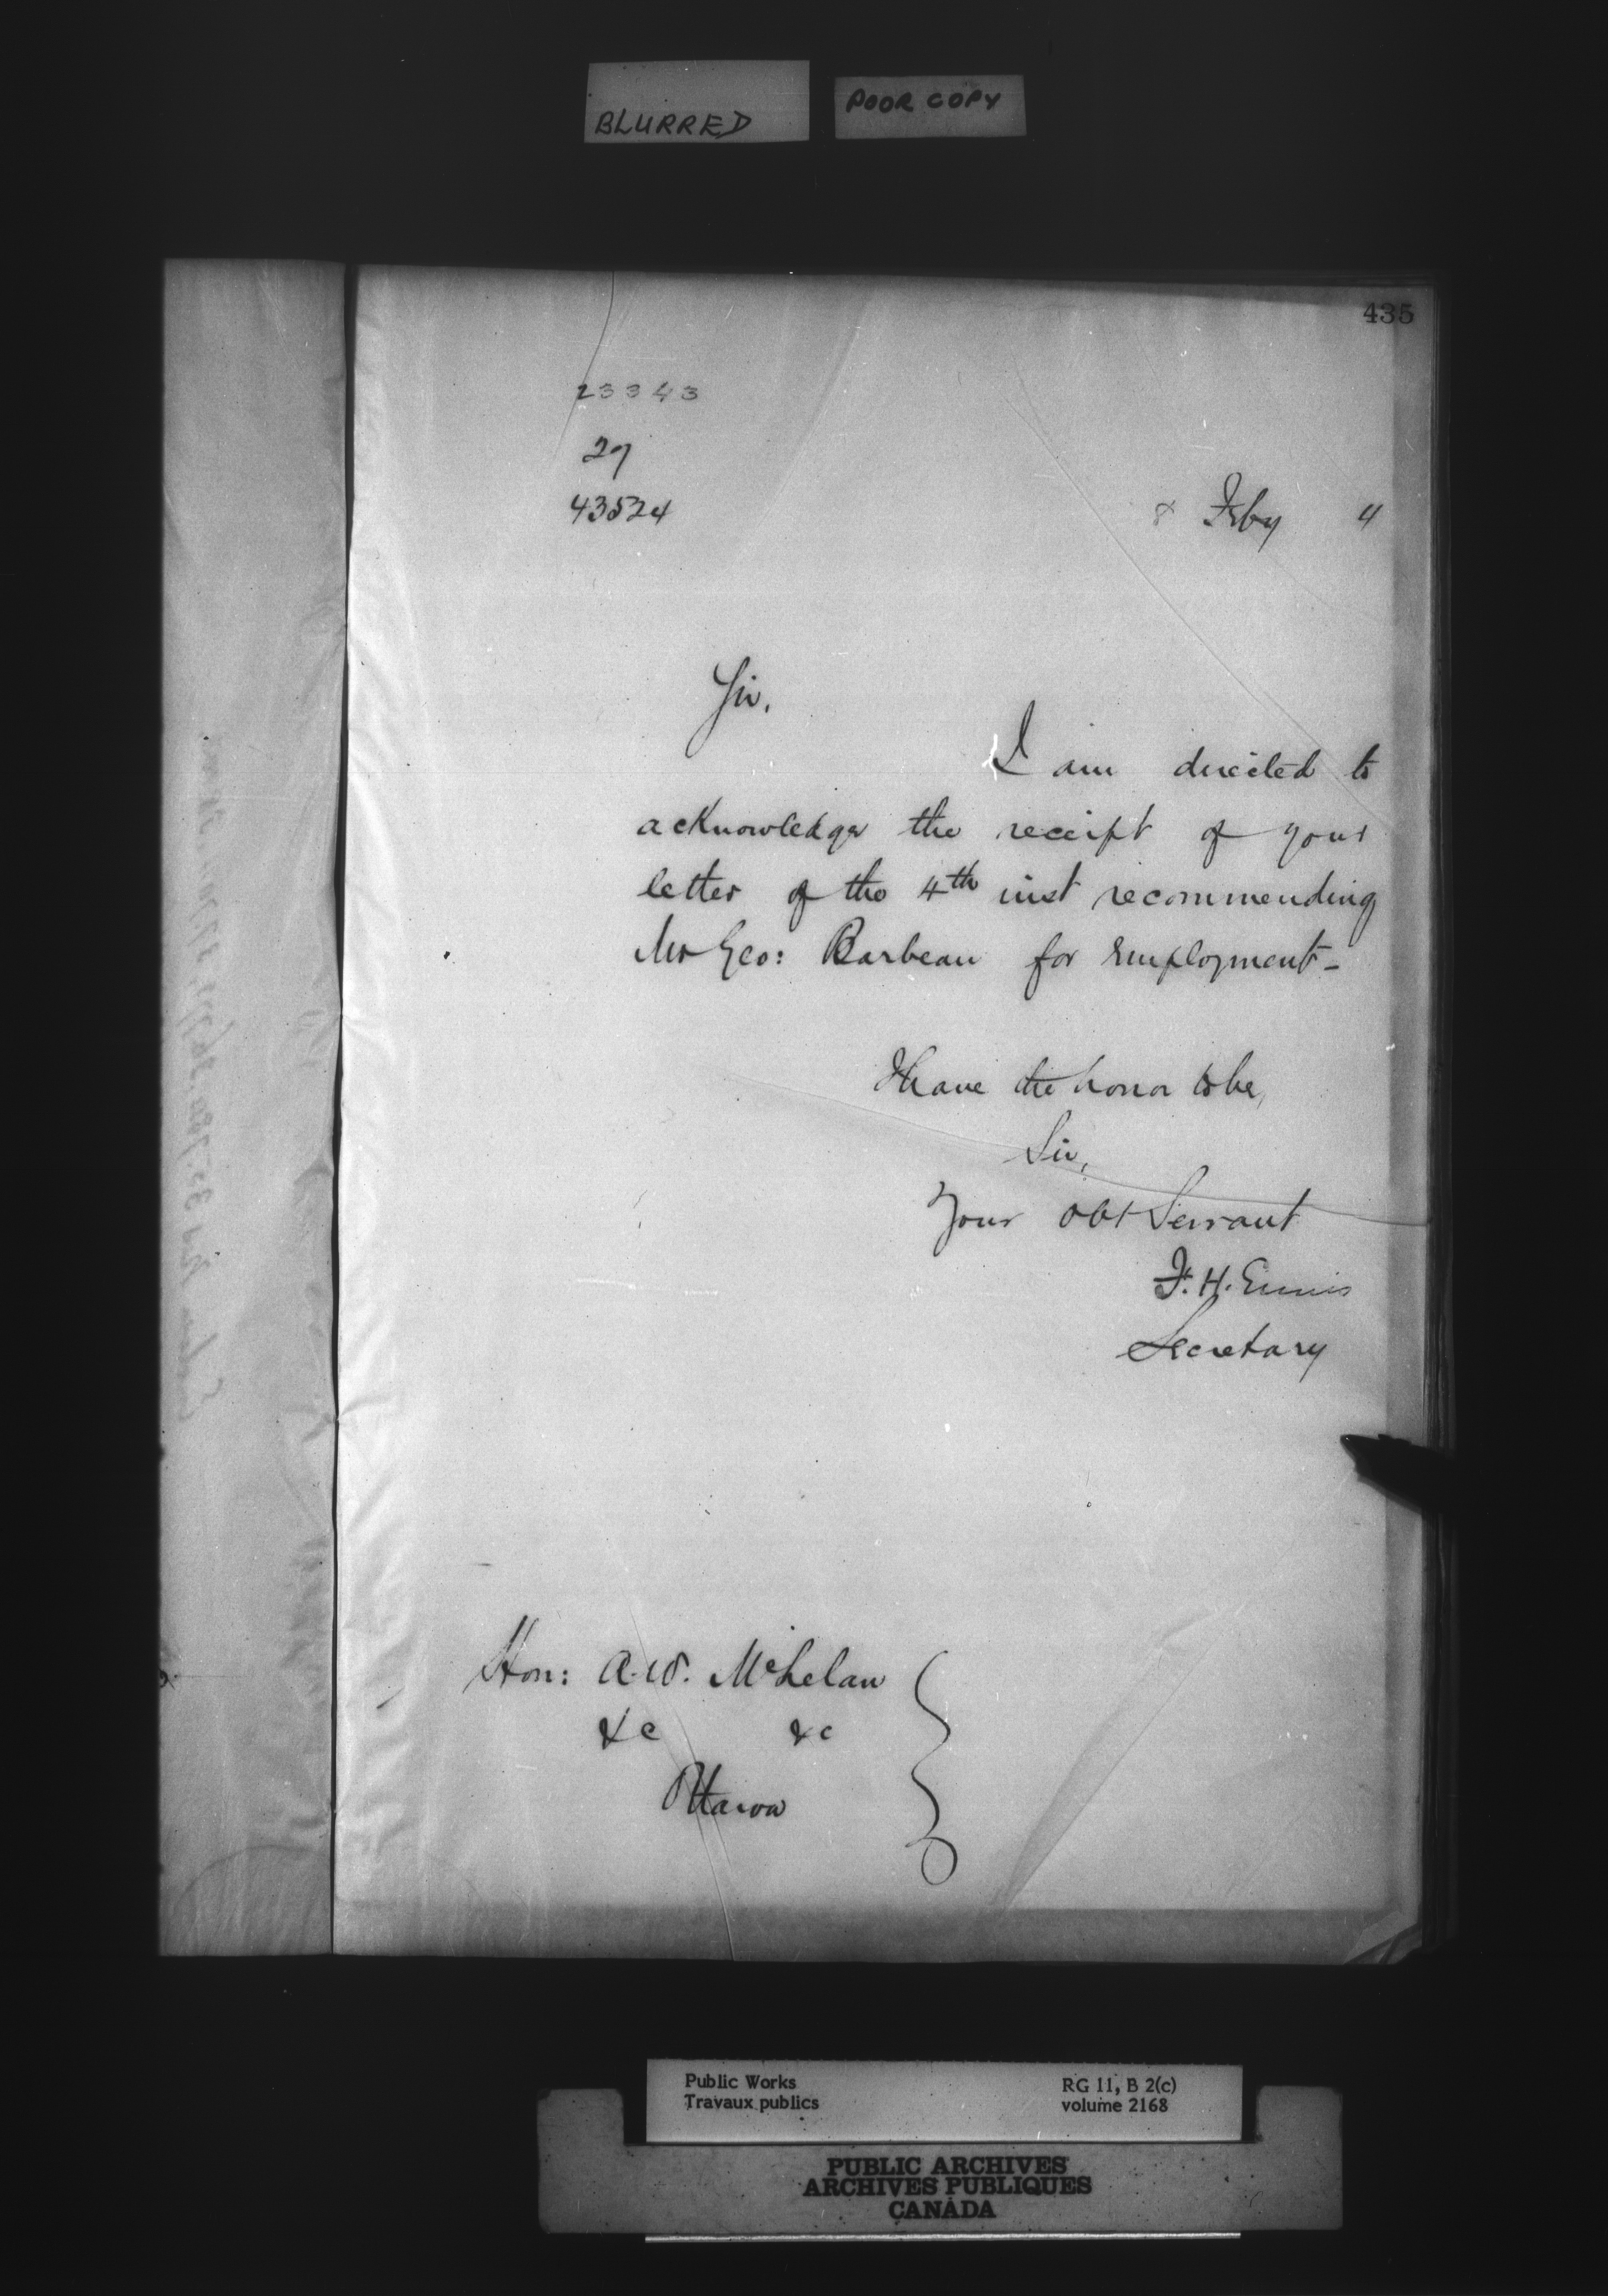 BLURRED
POOR COPY
435
23343
27
43524
8 Feby 4
Sir,
I am directed to
acknowledge the receipt of your
letter of the 4th inst recommending
Mr Geo: Barbeau for Employment -
I have the honor to be,
Sir,
Your Obt Servant
F. H. Ennis
Secretary
Hon: A. W. McLelan
&c &c
Ottawa
Public Works
Travaux publics
RG 11, B 2(c)
volume 2168
PUBLIC ARCHIVES
ARCHIVES PUBLIQUES
CANADA